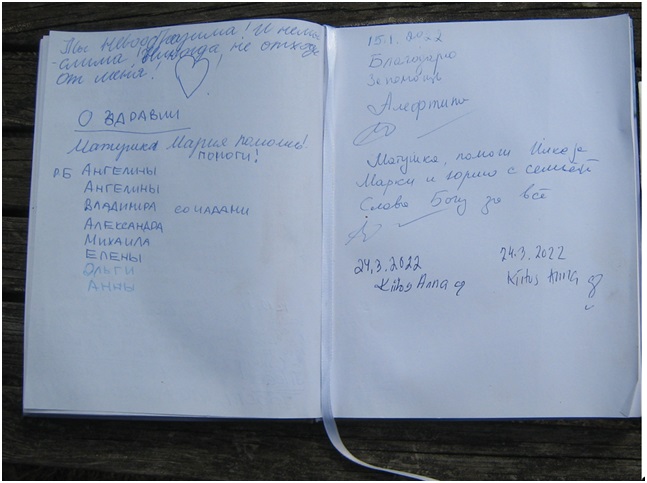 Ты невообразима! И немы-
слима! Никогда не отходи
от меня!
О ЗДРАВИИ
Матушка Мария помолись!
ПОМОГИ!
РБ АНГЕЛИНЫ
АНГЕЛИНЫ
ВЛАДИМИРА СО ЧАДАМИ
АЛЕКСАНДРА
МИХАИЛА
ЕЛЕНЫ
ОЛЬГИ
АННЫ
15.1.2022
Благодарю
За помощь
Алефтина
Матушка, помоги
и с семьей
Слава Богу за всё
24.3.2022
Kiitos Anna
24.3.2022
Kiitos Anna